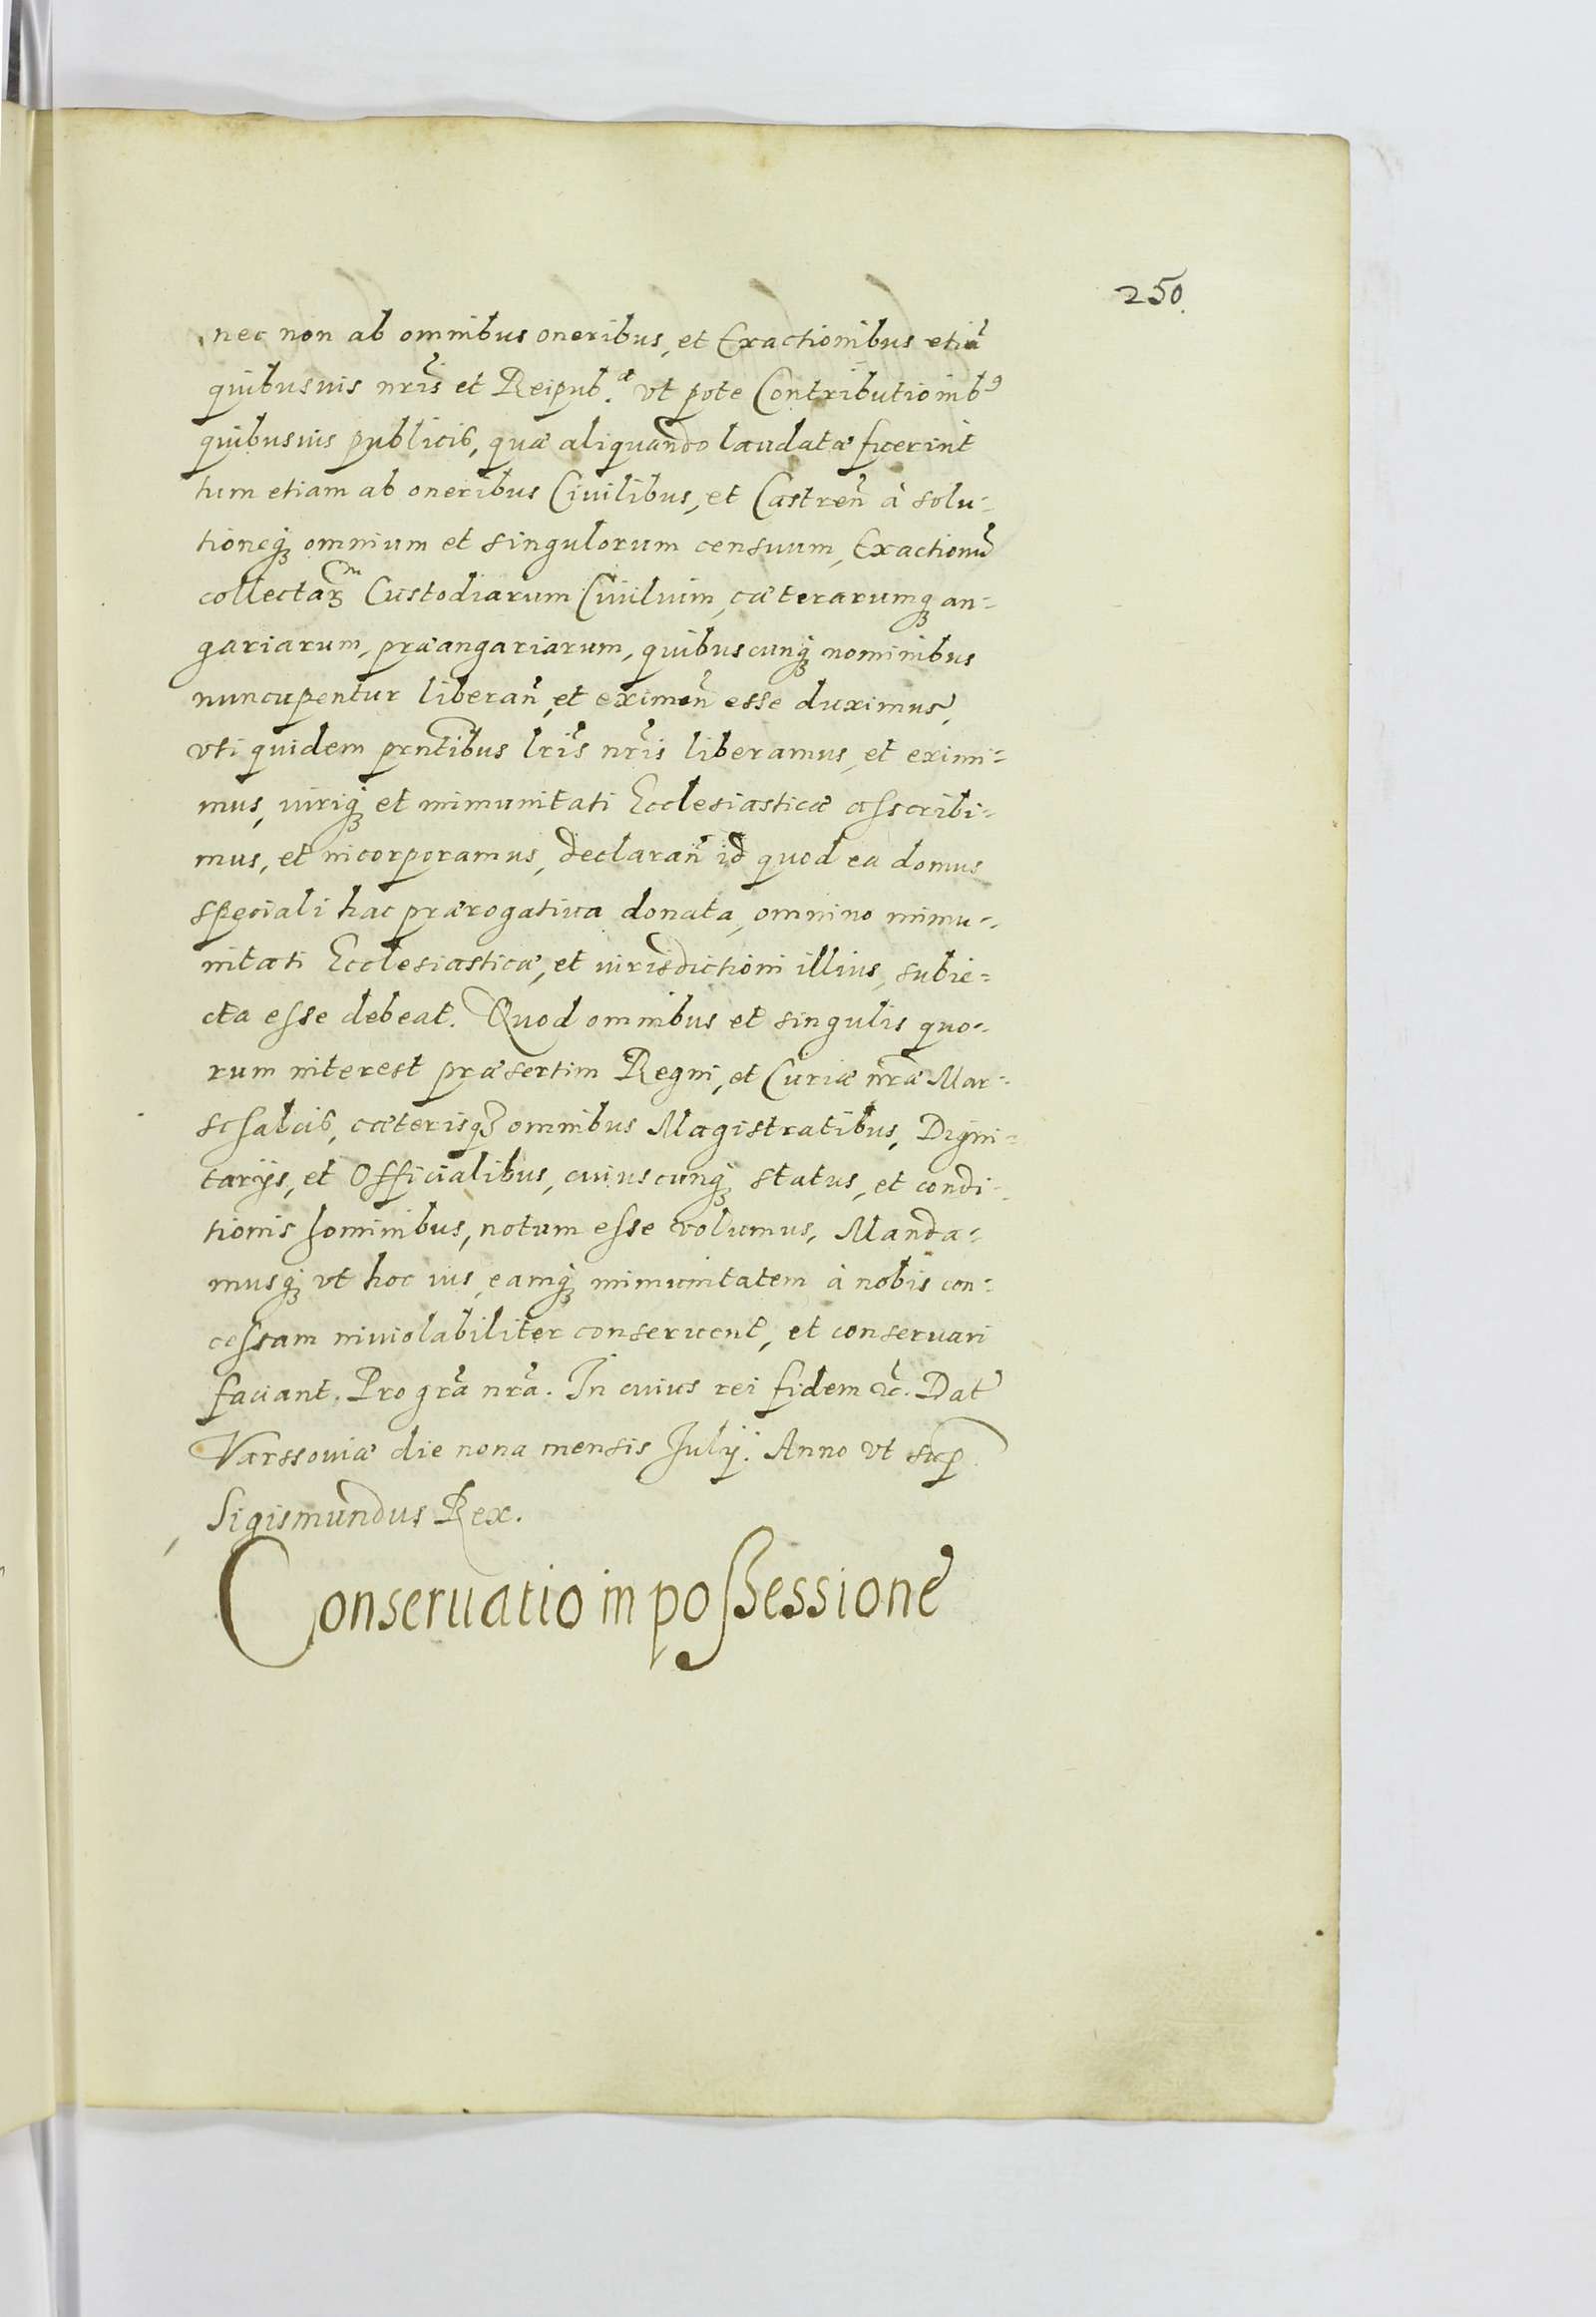 250.
nec non ab omnibus oneribus, et Exactionibus etiã
quibusuis nr̃is et Reipub.æ vt pote Contributionib9
quibusuis publicis, quæ aliquando laudatæ fuerint
tum etiam ab oneribus Ciuilibus, et Castren̄ à solu=
tioneq; omnium et singulorum censuum, Exactionũ
collectarꝫ Custodiarum Ciuilium, cæterarumq; an=
gariarum, præangariarum, quibuscunq; nominibus
nuncupentur liberan̄, et eximen̄ esse duximus,
vti quidem prñtibus lr̃is nr̃is liberamus, et eximi=
mus, iuriq; et immunitati Ecclesiasticæ asscribi=
mus, et incorporamus, declaran̄ id quod ea domus
speciali hac prærogatiua donata, omnino immu=
nitati Ecclesiasticæ, et iurisdictioni illius, subie=
cta esse debeat. Quod omnibus et singulis quo=
rum interest præsertim Regni, et Curiæ nr̃æ Mar=
schalcis, cæterisq; omnibus Magistratibus, Digni=
tarijs, et Officialibus, cuiuscunq; status, et condi=
tionis hominibus, notum esse volumus, Manda=
musq; vt hoc ius, eamq; immunitatem à nobis con=
cessam inuiolabiliter conseruent, et conseruari
faciant. Pro gr̃a nr̃a. In cuius rei fidem &c̃. Dat
Varssouiæ die nona mensis Julij. Anno vt sup
Sigismundus Rex.
Conseruatio in possessione